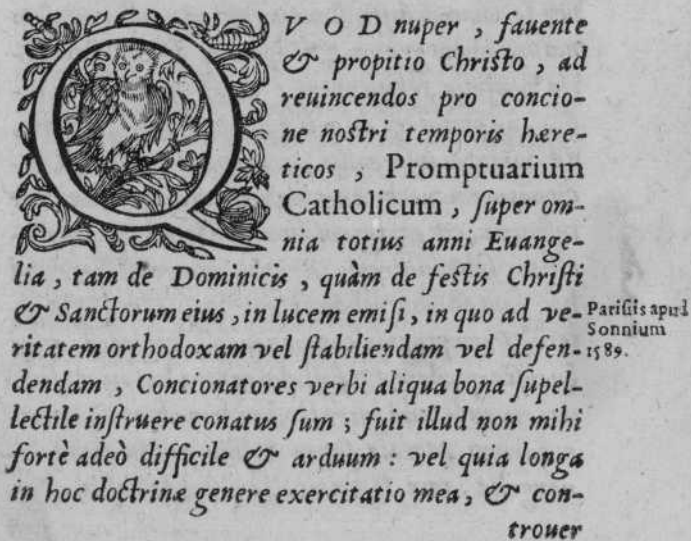 QVOD nuper, fauente
& propitio Christo, ad
reuincendos pro concio-
ne nostri temporis hære-
ticos, Promptuarium
Catholicum, super om-
nia totius anni Euange-
lia, tam de Dominicis, quàm de festis Christi
& Sanctorum eius, in lucem emisi, in quo ad ve-
ritatem orthodoxam vel stabiliendam vel defen-
dendam, Concionatores verbi aliqua bona supel-
lectile instruere conatus sum; fuit illud non mihi
fortè adeò difficile & arduum: vel quia longa
in hoc doctrinæ genere exercitatio mea, & con-
trouer
Parisiis apud
Sonnium
1589.